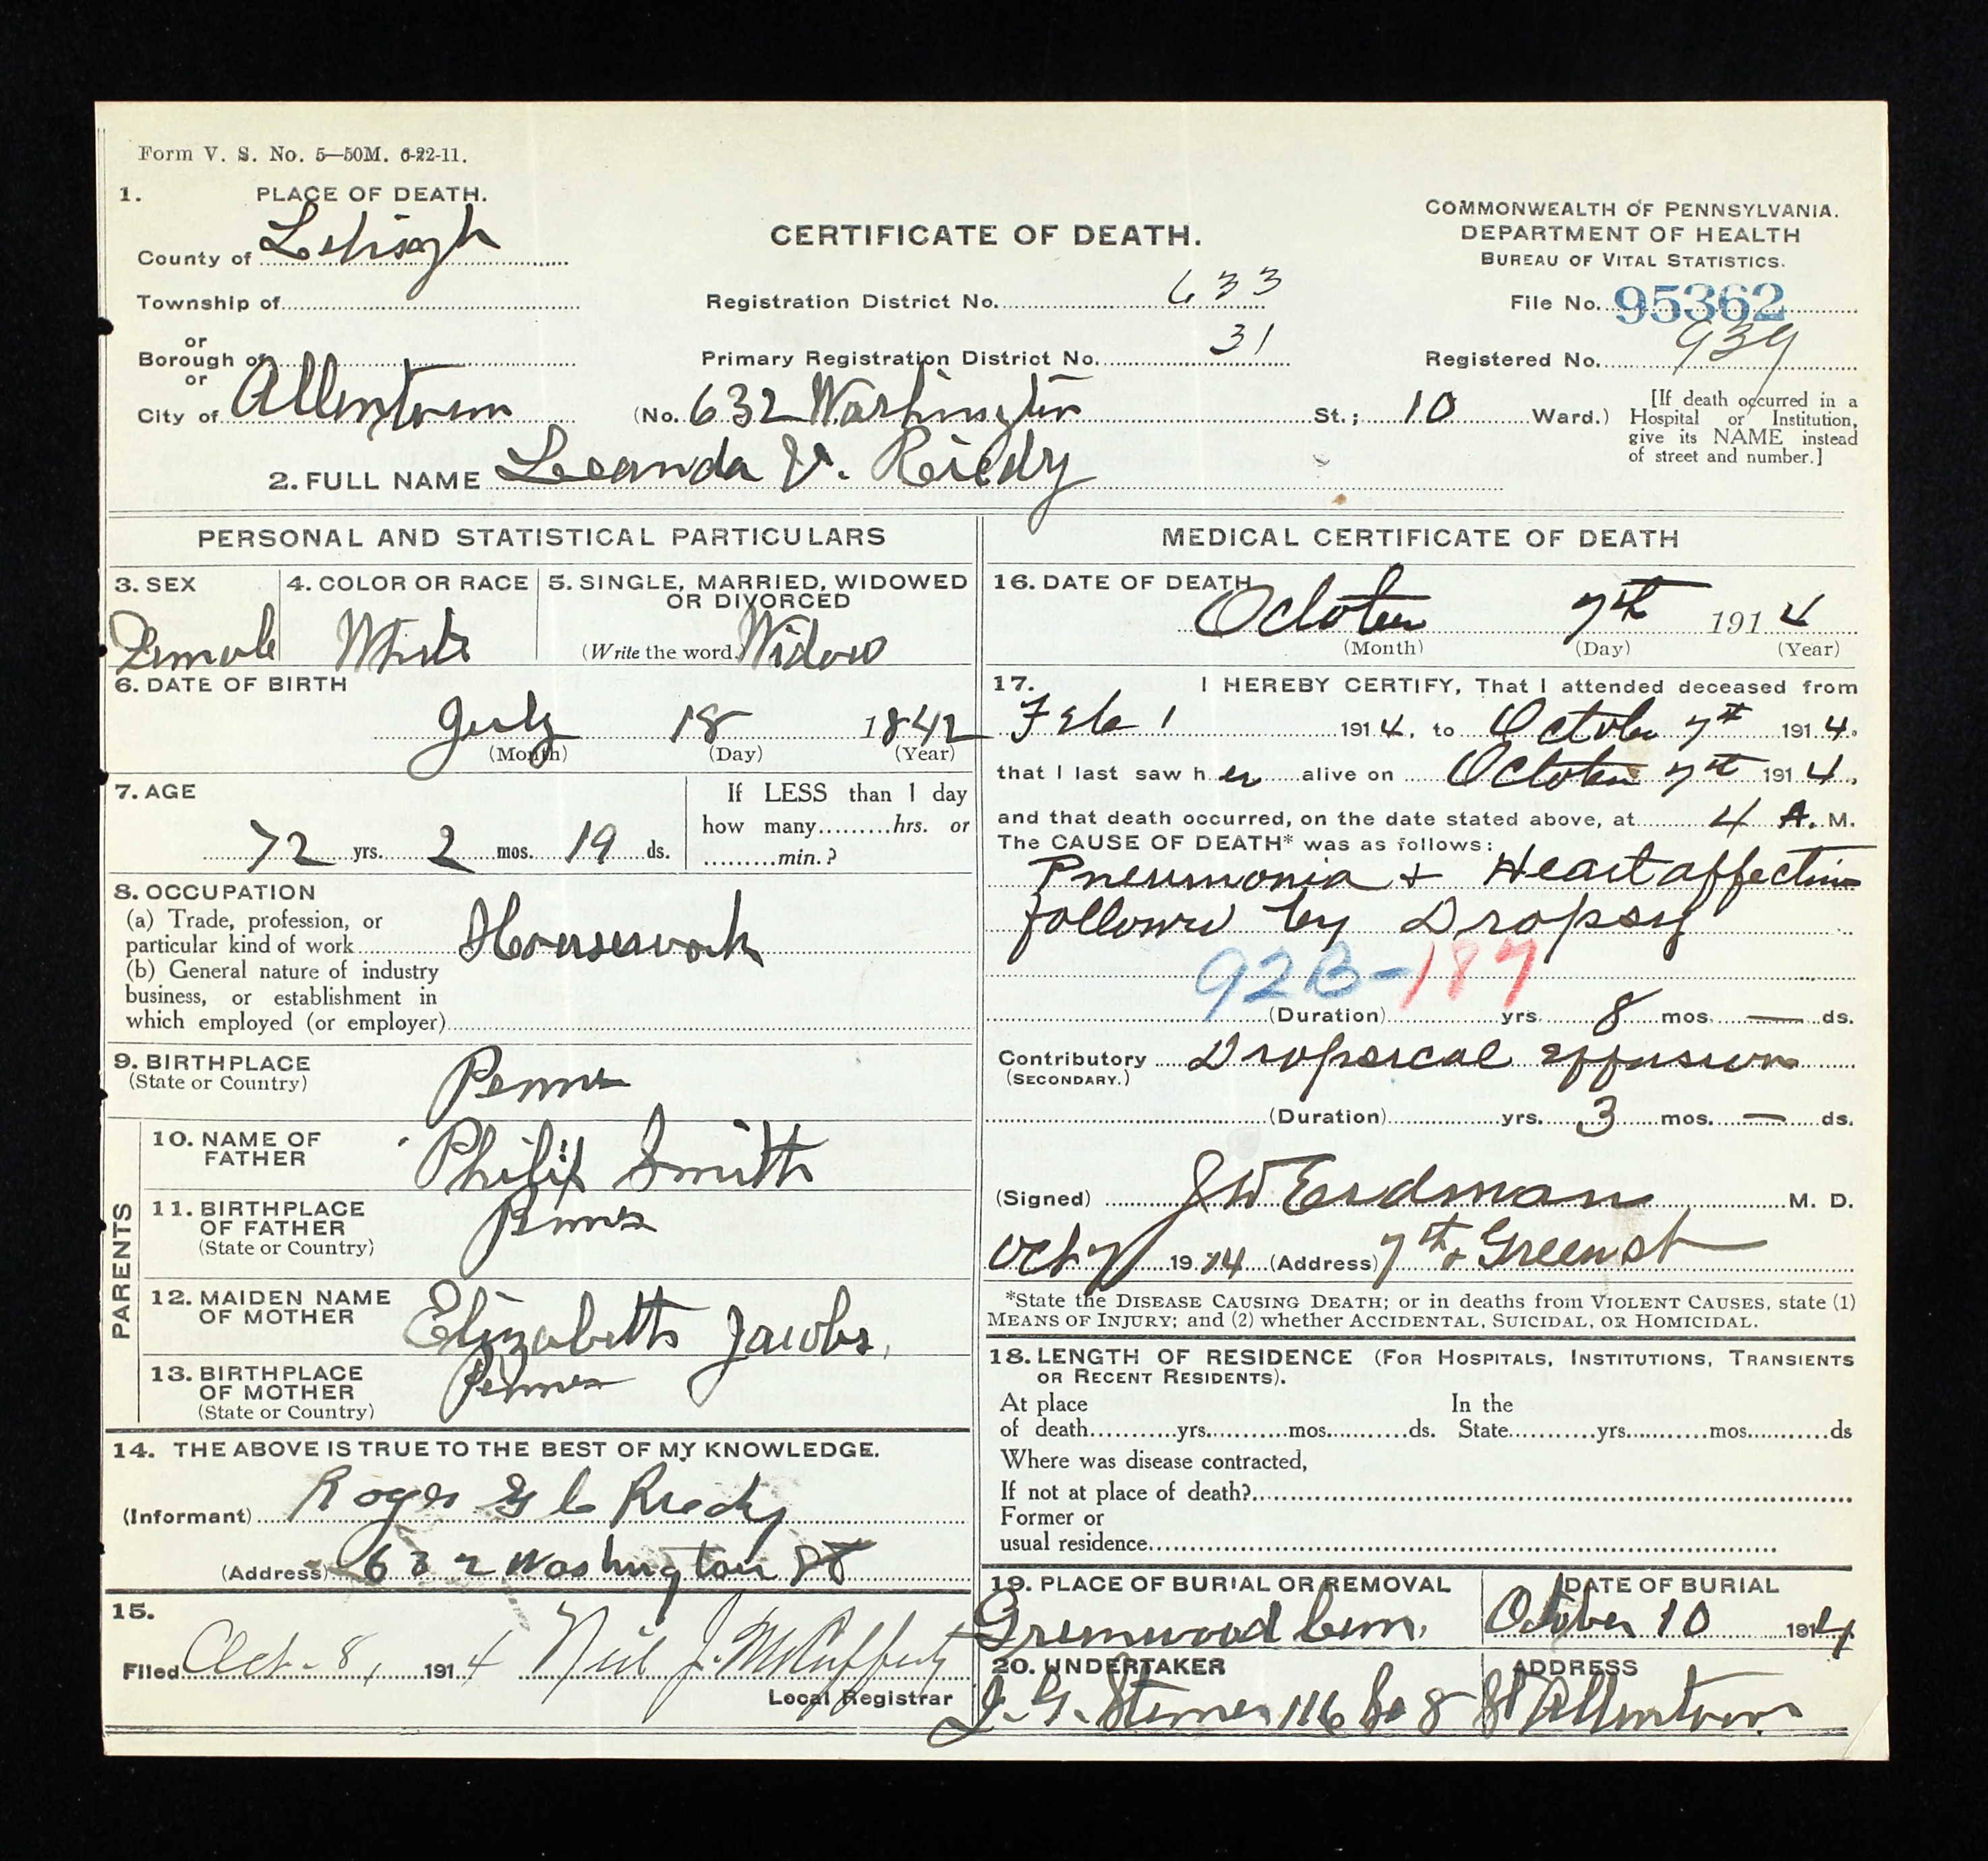 Form V. S. No. 5—50M. 6-22-11.
1. PLACE OF DEATH.
County of Lehigh
Township of
or
Borough of
or
City of Allentown
CERTIFICATE OF DEATH.
Registration District No. 633
Primary Registration District No. 31
(No. 632 Washington St.; 10 Ward.)
COMMONWEALTH OF PENNSYLVANIA.
DEPARTMENT OF HEALTH
BUREAU OF VITAL STATISTICS.
File No. 95362
Registered No. 939
[If death occurred in a
Hospital or Institution,
give its NAME instead
of street and number.]
2. FULL NAME Leanda V. Riedy
PERSONAL AND STATISTICAL PARTICULARS
3. SEX
Female
4. COLOR OR RACE
White
5. SINGLE, MARRIED, WIDOWED
OR DIVORCED
(Write the word.) Widow
6. DATE OF BIRTH
July 18 1842
(Month) (Day) (Year)
7. AGE
72 yrs. 2 mos. 19 ds.
If LESS than 1 day
how many.........hrs. or
.........min.?
8. OCCUPATION
(a) Trade, profession, or
particular kind of work Housework
(b) General nature of industry
business, or establishment in
which employed (or employer)
9. BIRTHPLACE
(State or Country) Penna
PARENTS
10. NAME OF
FATHER Philip Smith
11. BIRTHPLACE
OF FATHER
(State or Country) Penna
12. MAIDEN NAME
OF MOTHER Elizabeth Jacobs,
13. BIRTHPLACE
OF MOTHER
(State or Country) Penna
14. THE ABOVE IS TRUE TO THE BEST OF MY KNOWLEDGE.
(Informant) Roger Riedy
(Address) 632 Washington St
15.
Filed Oct. 8, 1914 Neil J. McCafferty
Local Registrar
MEDICAL CERTIFICATE OF DEATH
16. DATE OF DEATH
October 7th 1914
(Month) (Day) (Year)
17. I HEREBY CERTIFY, That I attended deceased from
Feb 1 1914, to October 7th 1914.
that I last saw her alive on October 7th 1914,
and that death occurred, on the date stated above, at 4 A. M.
The CAUSE OF DEATH* was as follows:
Pneumonia + Heart affection
followed by Dropsy
92B-187
(Duration) yrs. 8 mos. — ds.
Contributory Dropsical effusion
(SECONDARY.)
(Duration) yrs. 3 mos. — ds.
(Signed) J W Erdman M. D.
Oct 7 1914 (Address) 7th + Green st
*State the DISEASE CAUSING DEATH; or in deaths from VIOLENT CAUSES, state (1)
MEANS OF INJURY; and (2) whether ACCIDENTAL, SUICIDAL, OR HOMICIDAL.
18. LENGTH OF RESIDENCE (FOR HOSPITALS, INSTITUTIONS, TRANSIENTS
OR RECENT RESIDENTS).
At place In the
of death...........yrs...........mos...........ds. State...........yrs...........mos...........ds
Where was disease contracted,
If not at place of death?
Former or
usual residence
19. PLACE OF BURIAL OR REMOVAL
Greenwood Cem.
DATE OF BURIAL
October 10 1914
20. UNDERTAKER
ADDRESS
116 So 8 St Allentown